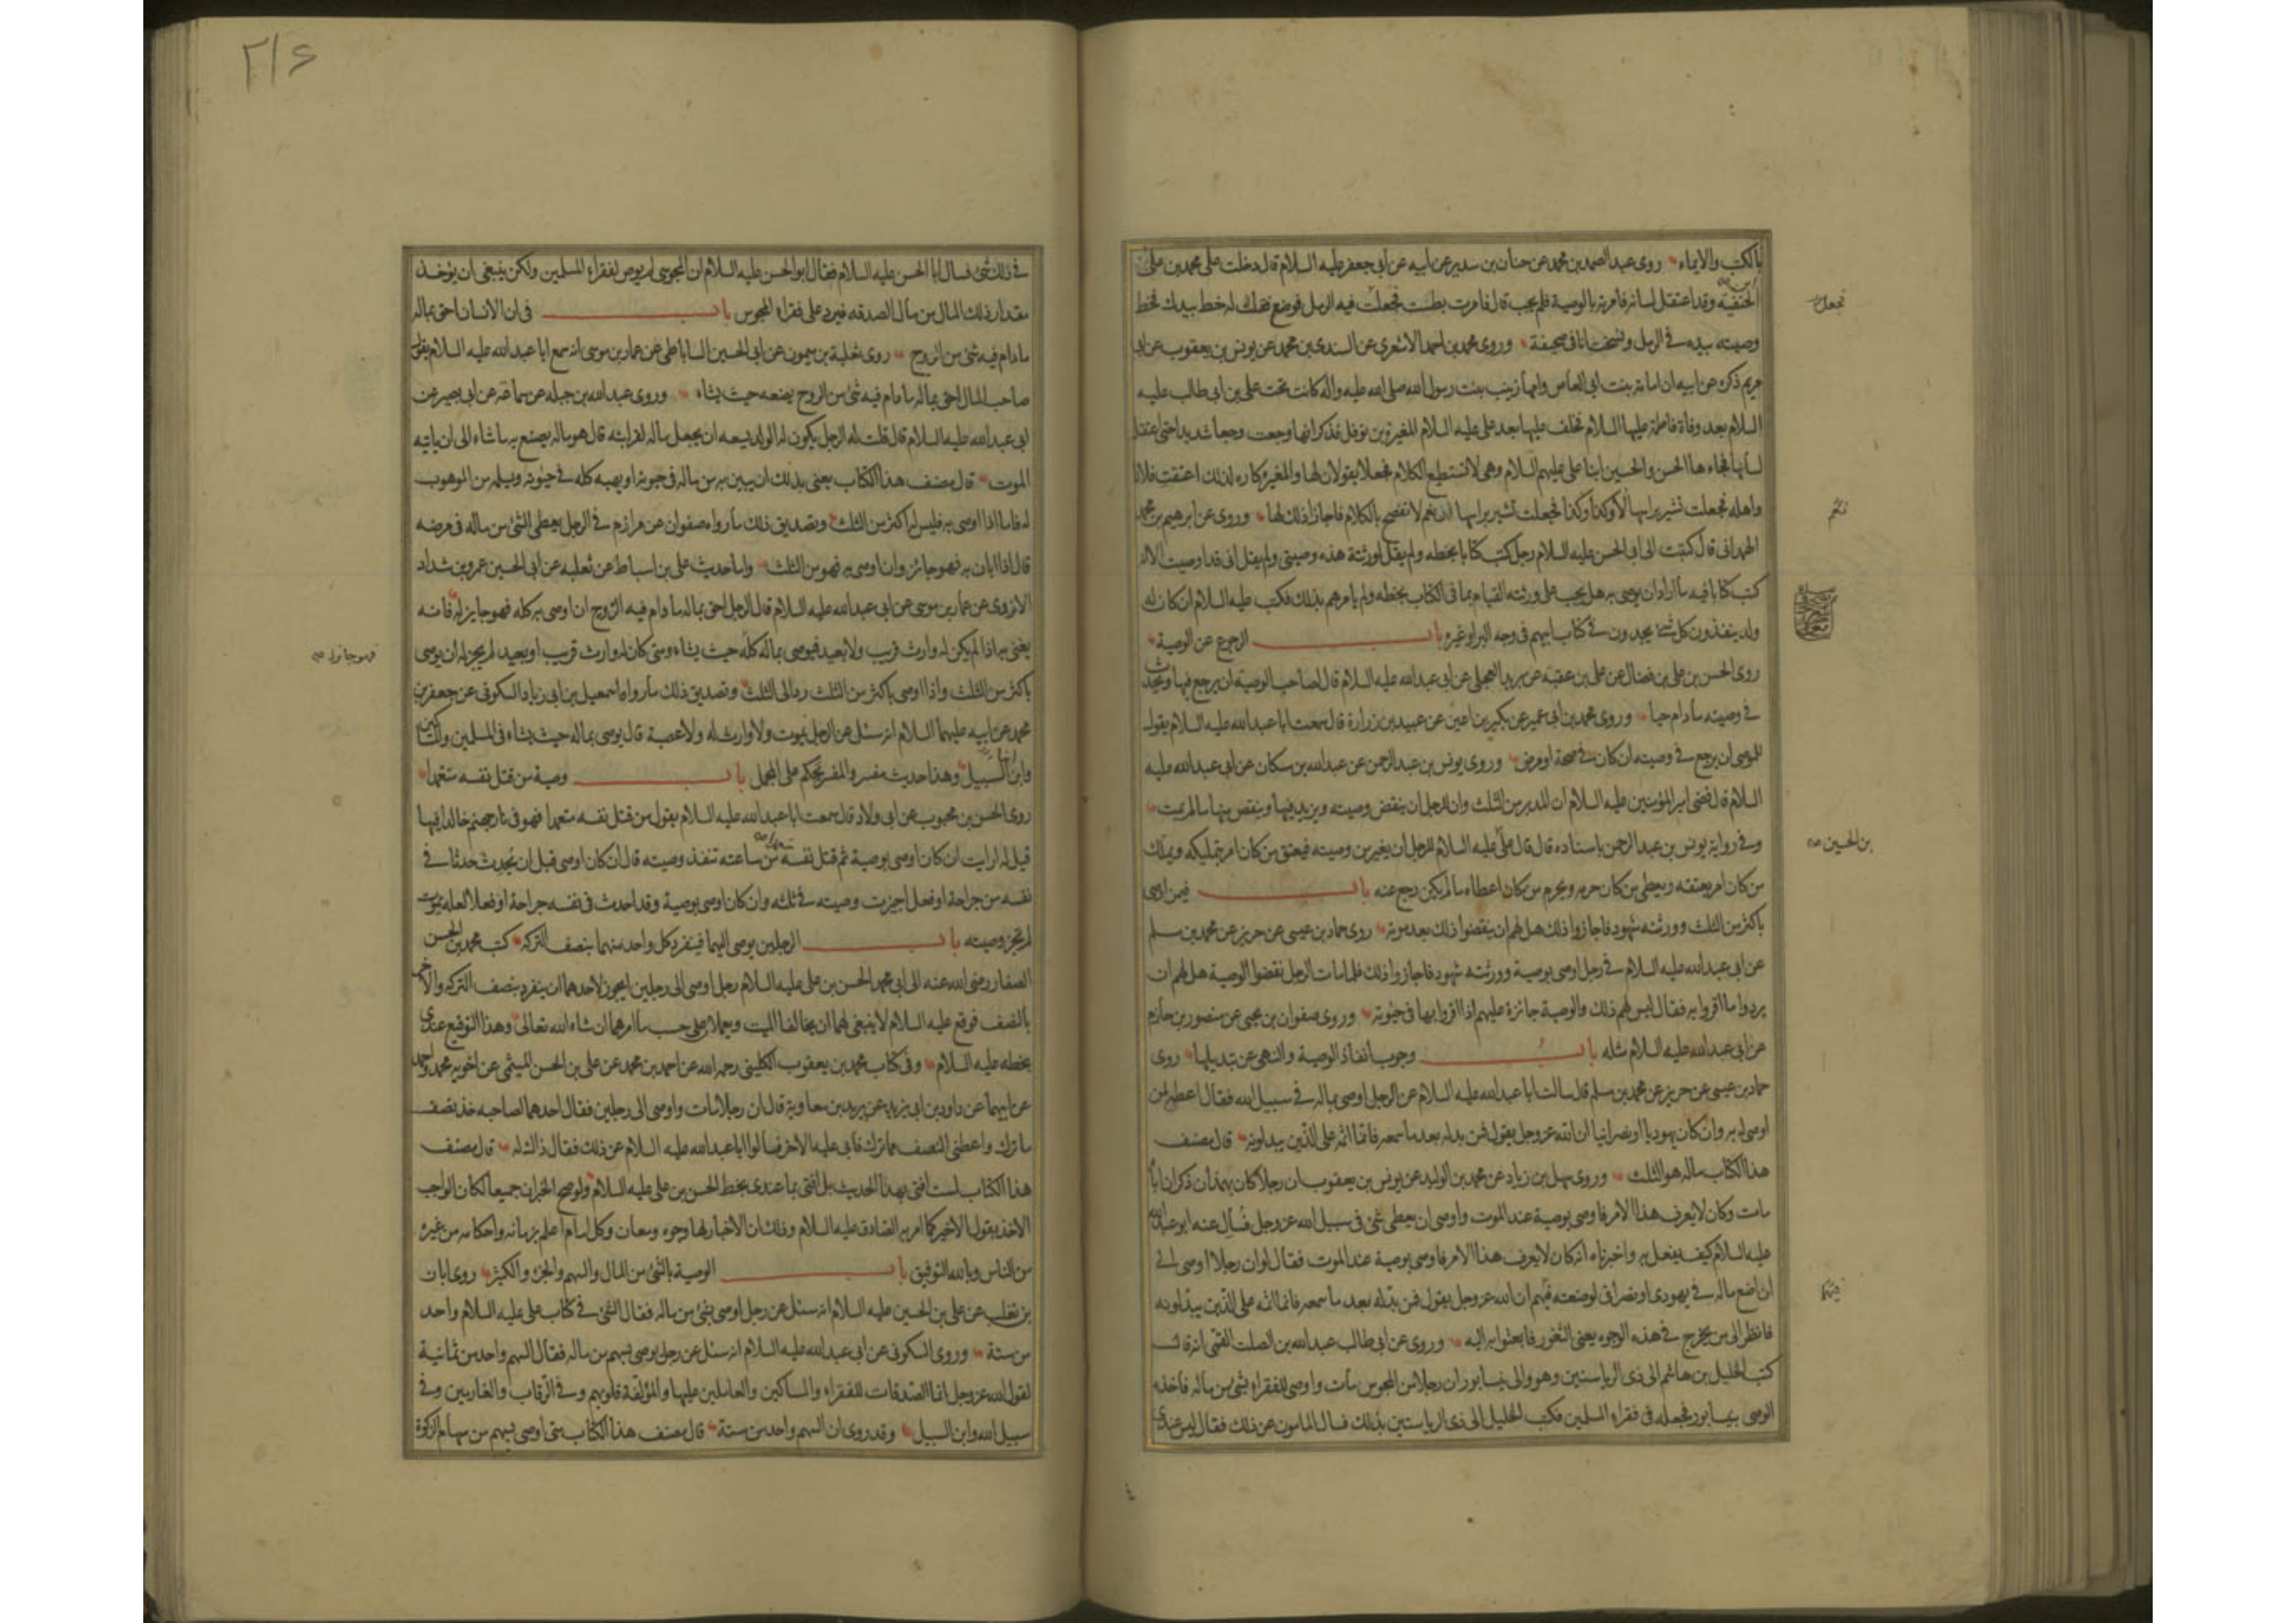 بالكتب والايماء روى عبد الصمد بن محمد عن حنان بن سدير عن ابيه عن ابي جعفر عليه السلام قال دخلت على محمد بن على
الحنفية وقد اعتقل لسانه فامرته بالوصية فلم يجب قال فامرت بطست فجعلت فيه الرمل فوضع فقلت له خط بيدك فخط
وصيته بيده في الرمل ونسخت انا في صحيفة وروى محمد بن احمد الاشعري عن السندي بن محمد عن يونس بن يعقوب عن ابي
مريم ذكره عن ابيه ان امامة بنت ابي العاص وامها زينب بنت رسول الله صلى الله عليه واله كانت تحت علي بن ابي طالب عليه
السلام بعد وفاة فاطمة عليها السلام فخلف عليها بعد على عليه السلام المغيرة بن نوفل فذكر انها وجعت وجعا شديدا حتى اعتقل
لسانها فجاءها الحسن والحسين ابنا على عليهم السلام وهى لا تستطيع الكلام فجعلا يقولان لها والمغيرة كاره لذلك اعتقت فلانا
واهله فجعلت تشير براسها لا وكذا وكذا فجعلت تشير براسها نعم لا تفصح بالكلام فاجازا ذلك لها وروى عن ابرهيم بن محمد
الهمداني قال كتبت الى ابي الحسن عليه السلام رجل كتب كتابا بخطه ولم يقل لورثته هذه وصيتي ولم يقل اني قد اوصيت الا انه
كتب كتابا فيه ما اراد ان يوصى به هل يجب على ورثته القيام بما في الكتاب بخطه ولم يامرهم بذلك فكتب عليه السلام ان كان له
ولد ينفذون كل شئ يجدون في كتاب ابيهم في وجه البر او غيره باب الرجوع عن الوصية
روى الحسن بن على بن فضال عن على بن عقبة عن بريد العجلى عن ابي عبد الله عليه السلام قال لصاحب الوصية ان يرجع فيها ويحدث
في وصيته ما دام حيا وروى محمد بن ابي عمير عن بكير بن اعين عن عبيد بن زرارة قال سمعت ابا عبد الله عليه السلام يقول
للموصى ان يرجع في وصيته ان كان في صحة او مرض وروى يونس بن عبد الرحمن عن عبد الله بن سكان عن ابي عبد الله عليه
السلام قال قضى امير المؤمنين عليه السلام ان المدبر من الثلث وان للرجل ان ينقض وصيته ويزيد فيها وينقص منها ما لم يمت
وفي رواية يونس بن عبد الرحمن باسناده قال قال على عليه السلام للرجل ان يغير من وصيته فيعتق من كان امر بتمليكه ويملك
من كان امر بعتقه ويعطى من كان حرمه ويحرم من كان اعطاه ما لم يكن رجع عنه باب فيمن اوصى
باكثر من الثلث وورثته شهود فاجازوا ذلك هل لهم ان ينقضوا ذلك بعد موته روى حماد بن عيسى عن حريز عن محمد بن مسلم
عن ابي عبد الله عليه السلام في رجل اوصى بوصية وورثته شهود فاجازوا ذلك فلما مات الرجل نقضوا الوصية هل لهم ان
يردوا ما اقروا به فقال ليس لهم ذلك والوصية جائزة عليهم اذا اقروا بها في حيوته وروى صفوان بن يحيى عن منصور بن حازم
عن ابي عبد الله عليه السلام مثله باب وجوب انفاذ الوصية والنهى عن تبديلها روى
حماد بن عيسى عن حريز عن محمد بن مسلم قال سالت ابا عبد الله عليه السلام عن الرجل اوصى بماله في سبيل الله فقال اعطه لمن
اوصى له به وان كان يهوديا او نصرانيا ان الله عز وجل يقول فمن بدله بعد ما سمعه فانما اثمه على الذين يبدلونه قال مصنف
هذا الكتاب ماله هو الثلث وروى سهل بن زياد عن محمد بن الوليد عن يونس بن يعقوب ان رجلا كان بهمدان ذكر ان اباه
مات وكان لا يعرف هذا الامر فاوصى بوصية عند الموت واوصى ان يعطى شئ في سبيل الله عز وجل فسأل عنه ابو عبد الله
عليه السلام كيف يفعل به واخبرناه انه كان لا يعرف هذا الامر فاوصى بوصية عند الموت فقال لو ان رجلا اوصى الى
ان اضع ماله في يهودى او نصرانى لوضعته فيهم ان الله عز وجل يقول فمن بدله بعد ما سمعه فانما اثمه على الذين يبدلونه
فانظر الى من يخرج في هذه الوجوه يعنى الثغور فابعثوا به اليه وروى عن ابي طالب عبد الله بن الصلت القمى انه قال
كتب الخليل بن هاشم الى ذى الرياستين وهو والى نيسابور ان رجلا من المجوس مات واوصى للفقراء بشئ من ماله فاخذه
الوصى بنيسابور فجعله في فقراء المسلمين فكتب الخليل الى ذى الرياستين بذلك فسال المامون عن ذلك فقال ليس عندى
بن الحسين
٢١۶
في ذلك شئ فسال ابا الحسن عليه السلام فقال ابو الحسن عليه السلام ان المجوسى لم يوص لفقراء المسلمين ولكن ينبغى ان يؤخذ
مقدار ذلك المال من مال الصدقه فيرد على فقراء المجوس باب في ان الانسان احق بماله
ما دام فيه شئ من الروح روى ثعلبة بن ميمون عن ابي الحسين الساباطى عن عمار بن موسى انه سمع ابا عبد الله عليه السلام يقول
صاحب المال احق بماله ما دام فيه شئ من الروح يضعه حيث يشاء وروى عبد الله بن جبله عن سماعة عن ابي بصير عن
ابي عبد الله عليه السلام قال قلت له الرجل يكون له الولد يسعه ان يجعل ماله لقرابته قال هو ماله يصنع به ما شاء الى ان ياتيه
الموت قال مصنف هذا الكتاب يعنى بذلك ان يبين به من ماله في حيوته او يهبه كله في حيوته ويسلمه من الموهوب
له فاما اذا اوصى به فليس له اكثر من الثلث وتصديق ذلك ما رواه صفوان عن مرازم في الرجل يعطى الشئ من ماله في مرضه
قال اذا ابان به فهو جائز وان اوصى به فهو من الثلث واما حديث على بن اسباط عن ثعلبه عن ابي الحسين عمرو بن شداد
الازدى عن عمار بن موسى عن ابي عبد الله عليه السلام قال الرجل احق بماله ما دام فيه الروح ان اوصى به كله فهو جايز له فانه
يعنى به اذا لم يكن له وارث قريب ولا بعيد فيوصى بماله كله حيث يشاء ومتى كان له وارث قريب او بعيد لم يجز له ان يوصى
باكثر من الثلث واذا اوصى باكثر من الثلث رد الى الثلث وتصديق ذلك ما رواه اسمعيل بن ابي زياد السكونى عن جعفر بن
محمد عن ابيه عليهما السلام انه سئل عن الرجل يموت ولا وارث له ولا عصبة قال يوصى بماله حيث يشاء في المسلمين والمساكين
وابن السبيل وهذا حديث مفسر والمفسر يحكم على المجمل باب وصية من قتل نفسه متعمدا
روى الحسن بن محبوب عن ابي ولاد قال سمعت ابا عبد الله عليه السلام يقول من قتل نفسه متعمدا فهو في نار جهنم خالدا فيها
قيل له ارايت ان كان اوصى بوصية ثم قتل نفسه من ساعته تنفذ وصيته قال ان كان اوصى قبل ان يحدث حدثا في
نفسه من جراحة او فعل اجيزت وصيته في ثلثه وان كان اوصى بوصية وقد احدث في نفسه جراحة او فعلا لعله يموت
لم تجز وصيته باب الرجلين يوصى اليهما فينفرد كل واحد منهما بنصف التركه كتب محمد بن الحسن
الصفار رضى الله عنه الى ابي محمد الحسن بن على عليه السلام رجل اوصى الى رجلين ايجوز لاحدهما ان ينفرد بنصف التركه والاخر
بالنصف فوقع عليه السلام لا ينبغى لهما ان يخالفا الميت ويعملان على حسب ما امرهما ان شاء الله تعالى وهذا التوقيع عندى
بخطه عليه السلام وفي كتاب محمد بن يعقوب الكلينى رحمه الله عن احمد بن محمد عن على بن الحسن الميثمى عن اخويه محمد واحمد
عن ابيهما عن داود بن ابي يزيد عن بريد بن معاوية قال ان رجلا مات واوصى الى رجلين فقال احدهما لصاحبه خذ نصف
ما ترك واعطنى النصف مما ترك فابى عليه الاخر فسالوا ابا عبد الله عليه السلام عن ذلك فقال ذاك له قال مصنف
هذا الكتاب لست افتى بهذا الحديث بل افتى بما عندى بخط الحسن بن على عليه السلام ولو صح الخبران جميعا لكان الواجب
الاخذ بقول الاخير كما امر به الصادق عليه السلام وذلك ان الاخبار لها وجوه ومعان وكل امام اعلم بزمانه واحكامه من غيره
من الناس وبالله التوفيق باب الوصية بالشئ من المال والسهم والجزء والكثير روى ابان
بن تغلب عن على بن الحسين عليه السلام انه سئل عن رجل اوصى بشئ من ماله فقال الشئ في كتاب على عليه السلام واحد
من ستة وروى السكونى عن ابي عبد الله عليه السلام انه سئل عن رجل يوصى بسهم من ماله فقال السهم واحد من ثمانية
لقول الله عز وجل انما الصدقات للفقراء والمساكين والعاملين عليها والمؤلفة قلوبهم وفي الرقاب والغارمين وفي
سبيل الله وابن السبيل وقد روى ان السهم واحد من ستة قال مصنف هذا الكتاب متى اوصى بسهم من سهام الزكوة
فهو جائز له